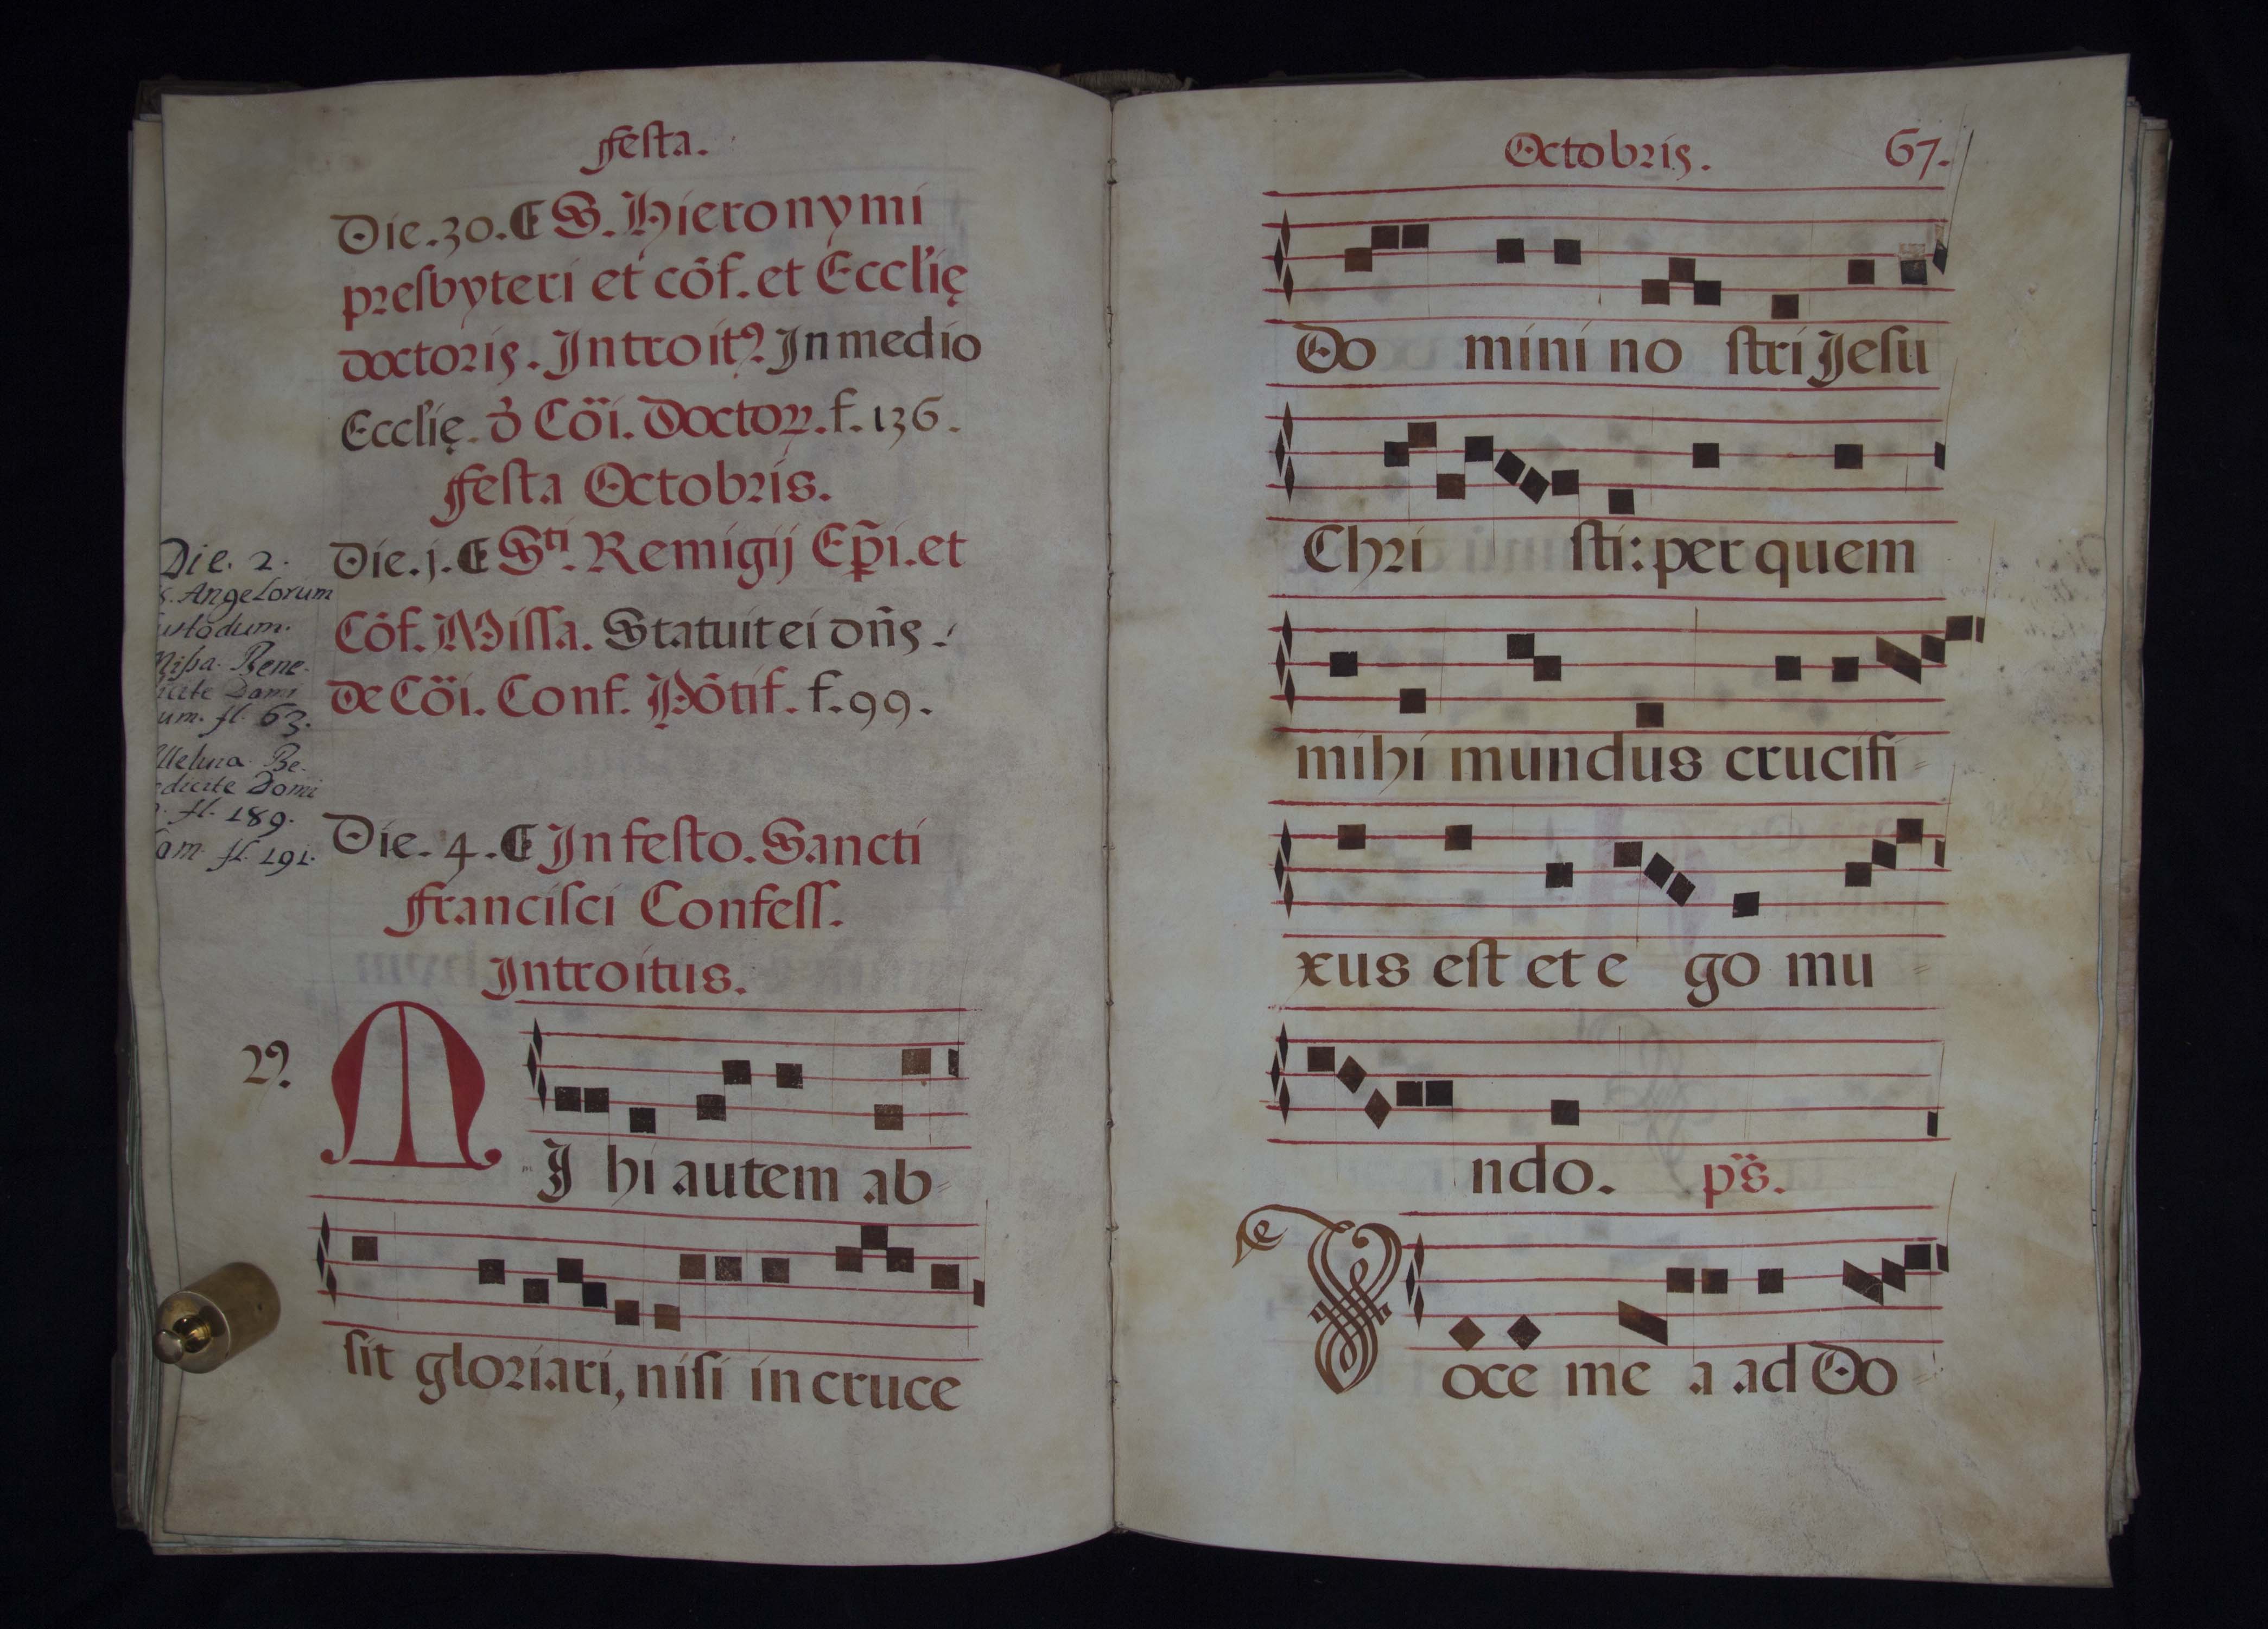 Festa.
Die. 30. S. Hieronymi
presbyteri et cōf. et Eccl'ię
doctoris. Introit9. In medio
Eccl'ię. d̄ Cōi. Doctoꝝ. f. 136.
Festa Octobris.
Die. j. Sti. Remigij Ep̃i. et
Cōf. Missa. Statuit ei dn̄s.
de Cōi. Conf. Pōtif. f. 99.
Die. 2.
S. Angelorum
ustodum.
Mißa. Bene-
icite Domi
um. fl. 63.
lleluia. Be-
edicite Domi
fl. 189.
om. fl. 191.
Die. 4. In festo. Sancti
Francisci Confess.
Introitus.
29.
MI hi autem ab-
sit gloriari, nisi in cruce
Octobris. 67.
Do mini no stri Jesu
Chri sti: per quem
mihi mundus crucifi-
xus est et e go mu-
ndo. ps.
e
Voce me a ad Do-